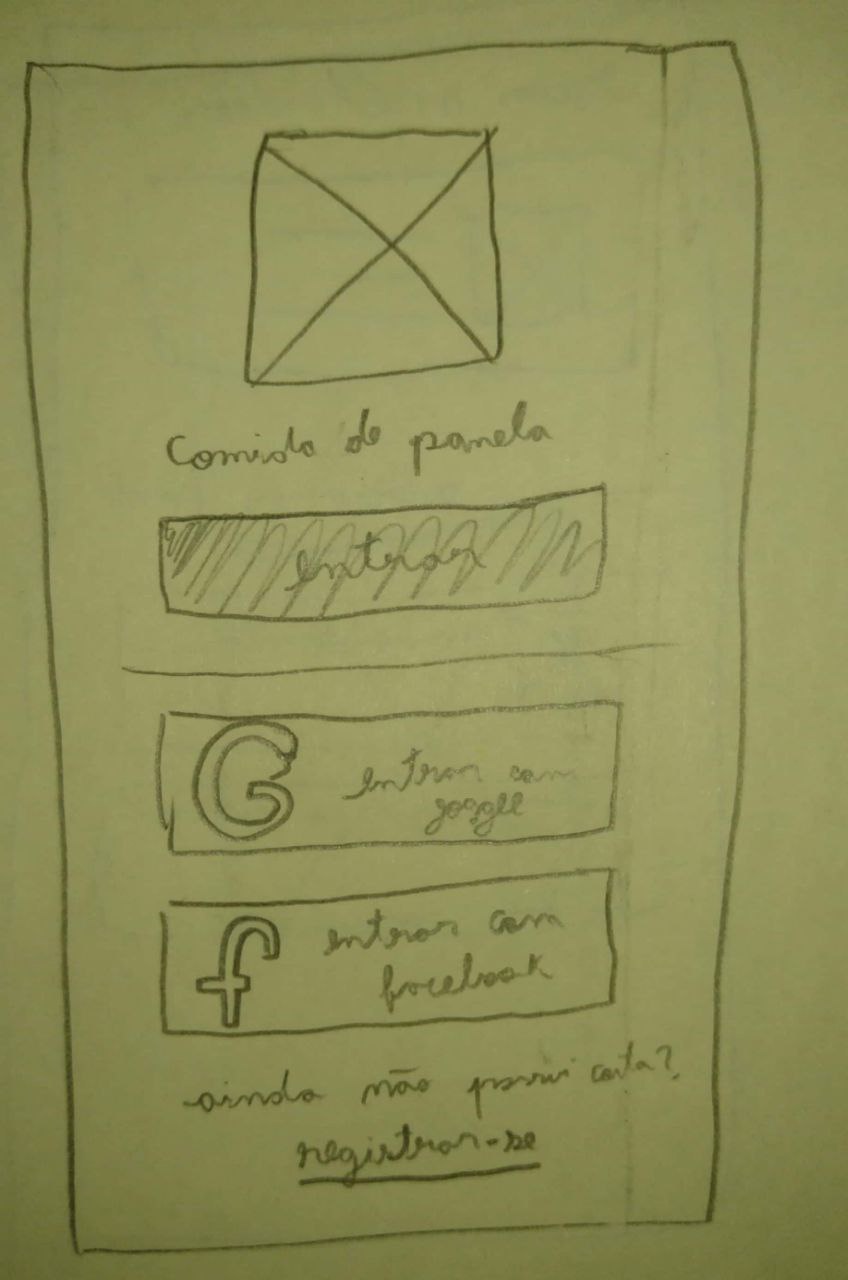 Comida de panela
entrar
G entrar com
google
f entrar com
facebook
ainda não possui conta?
registrar-se